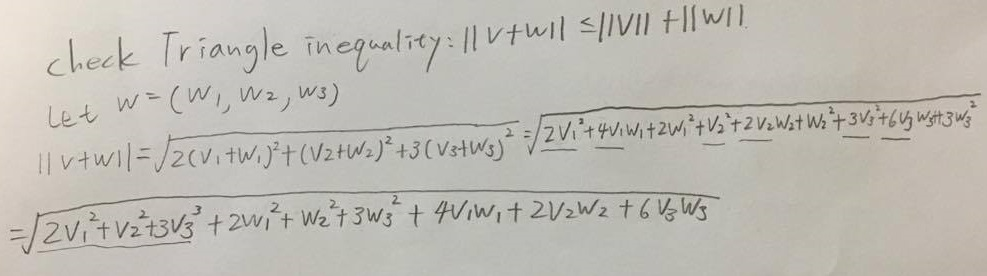 check Triangle inequality: ||V+W|| ≤ ||V|| + ||W||.
Let W = (W1, W2, W3)
||V+W|| = √(2(V1+W1)²+(V2+W2)²+3(V3+W3)²) = √(2V1²+4V1W1+2W1²+V2²+2V2W2+W2²+3V3²+6V3W3+3W3²)
= √(2V1²+V2²+3V3³+2W1²+W2²+3W3²+4V1W1+2V2W2+6V3W3)